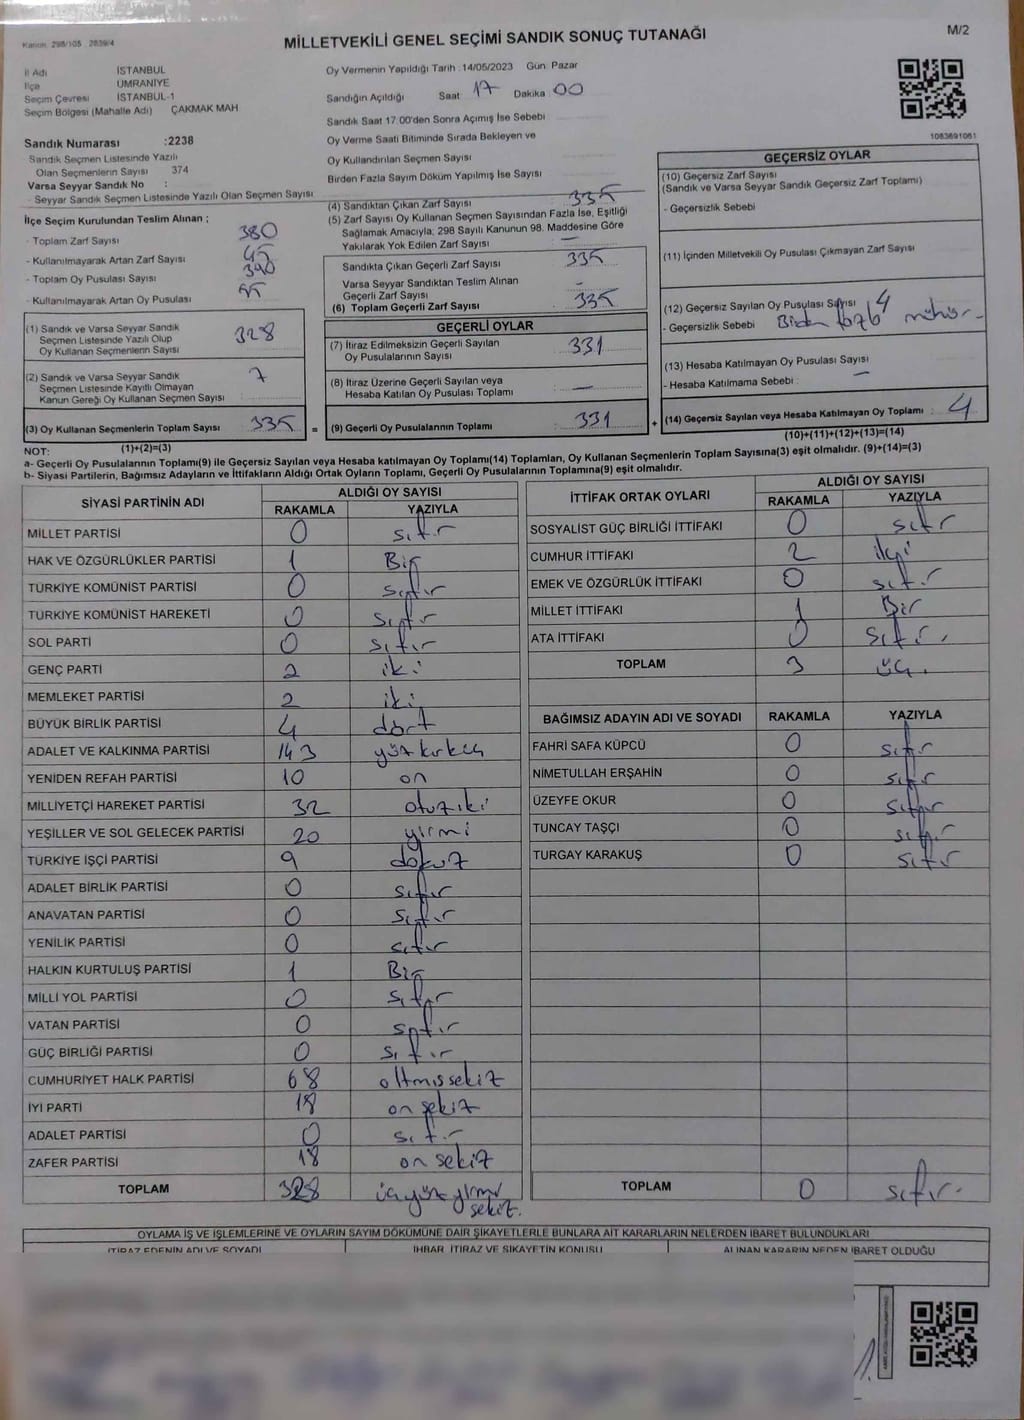 Kanun: 298/105 2839/4
MİLLETVEKİLİ GENEL SEÇİMİ SANDIK SONUÇ TUTANAĞI
M/2
İl Adı İSTANBUL
İlçe ÜMRANİYE
Seçim Çevresi İSTANBUL-1
Seçim Bölgesi (Mahalle Adı) ÇAKMAK MAH
Oy Vermenin Yapıldığı Tarih :14/05/2023 Gün: Pazar
Sandığın Açıldığı Saat 17 Dakika 00
Sandık Saat 17.00'den Sonra Açımış İse Sebebi
Oy Verme Saati Bitiminde Sırada Bekleyen ve
Oy Kullandırılan Seçmen Sayısı
Birden Fazla Sayım Döküm Yapılmış İse Sayısı
1083691061
Sandık Numarası :2238
Sandık Seçmen Listesinde Yazılı
Olan Seçmenlerin Sayısı 374
Varsa Seyyar Sandık No :
- Seyyar Sandık Seçmen Listesinde Yazılı Olan Seçmen Sayısı
İlçe Seçim Kurulundan Teslim Alınan ;
- Toplam Zarf Sayısı 380
- Kullanılmayarak Artan Zarf Sayısı 45
- Toplam Oy Pusulası Sayısı
- Kullanılmayarak Artan Oy Pusulası
(1) Sandık ve Varsa Seyyar Sandık
Seçmen Listesinde Yazılı Olup
Oy Kullanan Seçmenlerin Sayısı 328
(2) Sandık ve Varsa Seyyar Sandık
Seçmen Listesinde Kayıtlı Olmayan
Kanun Gereği Oy Kullanan Seçmen Sayısı 7
(3) Oy Kullanan Seçmenlerin Toplam Sayısı 335 =
(1)+(2)=(3)
(4) Sandıktan Çıkan Zarf Sayısı 335
(5) Zarf Sayısı Oy Kullanan Seçmen Sayısından Fazla İse, Eşitliği
Sağlamak Amacıyla; 298 Sayılı Kanunun 98. Maddesine Göre
Yakılarak Yok Edilen Zarf Sayısı —
Sandıkta Çıkan Geçerli Zarf Sayısı 335
Varsa Seyyar Sandıktan Teslim Alınan
Geçerli Zarf Sayısı -
(6) Toplam Geçerli Zarf Sayısı 335
GEÇERLİ OYLAR
(7) İtiraz Edilmeksizin Geçerli Sayılan
Oy Pusulalarının Sayısı 331
(8) İtiraz Üzerine Geçerli Sayılan veya
Hesaba Katılan Oy Pusulası Toplamı —
(9) Geçerli Oy Pusulalarının Toplamı 331 +
GEÇERSİZ OYLAR
(10) Geçersiz Zarf Sayısı
(Sandık ve Varsa Seyyar Sandık Geçersiz Zarf Toplamı)
- Geçersizlik Sebebi
(11) İçinden Milletvekili Oy Pusulası Çıkmayan Zarf Sayısı
(12) Geçersiz Sayılan Oy Pusulası Sayısı 4
- Geçersizlik Sebebi Birden fazla mühür
(13) Hesaba Katılmayan Oy Pusulası Sayısı —
- Hesaba Katılmama Sebebi :
(14) Geçersiz Sayılan veya Hesaba Katılmayan Oy Toplamı : 4
(10)+(11)+(12)+(13)=(14)
NOT:
a- Geçerli Oy Pusulalarının Toplamı(9) ile Geçersiz Sayılan veya Hesaba katılmayan Oy Toplamı(14) Toplamları, Oy Kullanan Seçmenlerin Toplam Sayısına(3) eşit olmalıdır. (9)+(14)=(3)
b- Siyasi Partilerin, Bağımsız Adayların ve İttifakların Aldığı Ortak Oyların Toplamı, Geçerli Oy Pusulalarının Toplamına(9) eşit olmalıdır.
SİYASİ PARTİNİN ADI ALDIĞI OY SAYISI
RAKAMLA YAZIYLA
MİLLET PARTİSİ 0 sıfır
HAK VE ÖZGÜRLÜKLER PARTİSİ 1 Bir
TÜRKİYE KOMÜNİST PARTİSİ 0 sıfır
TÜRKİYE KOMÜNİST HAREKETİ 0 sıfır
SOL PARTİ 0 sıfır
GENÇ PARTİ 2 iki
MEMLEKET PARTİSİ 2 iki
BÜYÜK BİRLİK PARTİSİ 4 dört
ADALET VE KALKINMA PARTİSİ 143 yüzkırküç
YENİDEN REFAH PARTİSİ 10 on
MİLLİYETÇİ HAREKET PARTİSİ 32 otuziki
YEŞİLLER VE SOL GELECEK PARTİSİ 20 yirmi
TÜRKİYE İŞÇİ PARTİSİ 9 dokuz
ADALET BİRLİK PARTİSİ 0 sıfır
ANAVATAN PARTİSİ 0 sıfır
YENİLİK PARTİSİ 0 sıfır
HALKIN KURTULUŞ PARTİSİ 1 Bir
MİLLİ YOL PARTİSİ 0 sıfır
VATAN PARTİSİ 0 sıfır
GÜÇ BİRLİĞİ PARTİSİ 0 sıfır
CUMHURİYET HALK PARTİSİ 68 altmışsekiz
İYİ PARTİ 18 onsekiz
ADALET PARTİSİ 0 sıfır
ZAFER PARTİSİ 18 onsekiz
TOPLAM 328 üçyüzyirmi
sekiz.
İTTİFAK ORTAK OYLARI ALDIĞI OY SAYISI
RAKAMLA YAZIYLA
SOSYALİST GÜÇ BİRLİĞİ İTTİFAKI 0 sıfır
CUMHUR İTTİFAKI 2 iki
EMEK VE ÖZGÜRLÜK İTTİFAKI 0 sıfır
MİLLET İTTİFAKI 1 Bir
ATA İTTİFAKI 0 sıfır.
TOPLAM 3 üç.
BAĞIMSIZ ADAYIN ADI VE SOYADI RAKAMLA YAZIYLA
FAHRİ SAFA KÜPCÜ 0 sıfır
NİMETULLAH ERŞAHİN 0 sıfır
ÜZEYFE OKUR 0 sıfır
TUNCAY TAŞÇI 0 sıfır
TURGAY KARAKUŞ 0 sıfır
TOPLAM 0 sıfır.
OYLAMA İŞ VE İŞLEMLERİNE VE OYLARIN SAYIM DÖKÜMÜNE DAİR ŞİKAYETLERLE BUNLARA AİT KARARLARIN NELERDEN İBARET BULUNDUKLARI
İTİRAZ EDENİN ADI VE SOYADI İHBAR, İTİRAZ VE ŞİKAYETİN KONUSU ALINAN KARARIN NEDEN İBARET OLDUĞU